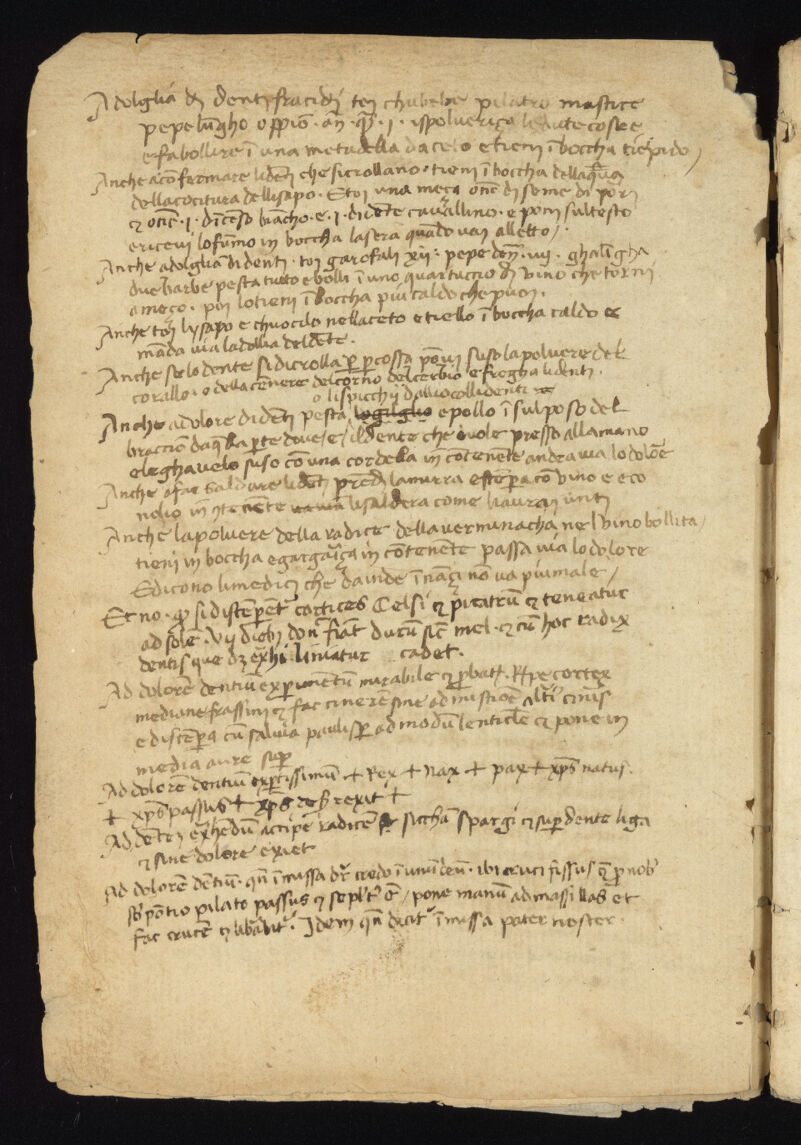 A doglia di denti fracidi toi chubebe pilatro mastice
pepe lungho oppio · an · q · i · ispolveriça le dute cose e
e fa bollire ī una metadella d aceto e tieni ī boccha tiepido /
Anche a cōfermare li dēti che si crollano · tieni ī boccha della
della cocitura dell isapo · E toi una meça onē di seme di porri
 onē · i · dīcēso biācho · e · i · di dēte cavallino · e poni sul testo
e ricevi lo fūmo in boccha la sera quādo vai alletto /
Anche a doglia di denti · toi garofali xii · pepe · vii · ghalīgha
due barbe pesta tutto e bolli ī uno quartuccio di vino che torni
a meço · poi lo tieni ī boccha piu caldo che puoi ·
Anche toi lysapo e chuocilo nell aceto e tiello ī boccha caldo e
māda via la dollia del dēte ·
Anche se lo dente si dicrolla p pcossa pōvi suso la polvere del
corallo · o della cenere del corno del cerbio e fregha li denti ·
o li spicchi d allio colli denti
Anche a dolore di dēti pesta e pollo ī sul poso del
braccio da qlla parte dove / e / il dente che duole presso alla mano
e leghavelo suso cō una cordella in cōtenente andra via lo dolore
Anche a far saldare li dēti prēdi la mirra e stēpa cō vino e con
l olio in cōtenente li saldera come li avrai unti
Anche la polvere della radice della verminacha nel vino bollita /
tieni in boccha e gargariça in cōtenente passa via lo dolore
E dicono li medici che da inde īnāçi nō va piu male /
Et no · q si distēpent cortices Celsi et piratrū et teneatur
ad sole · vij dieb donc fiāt durū sic mel · et cū hoc radix
dentis que dz exhi liniatur cadet ·
Ad dolorē dentiū expimētū mirabile et pbatū · Rpe cortex
mediane frassini et fac cinerē sine admistioē altī cinis
e distēpa cū salvia paulisp ad modū lenticle et pone in
media aure sup
Ad dolorē dentiū exptissimū + Rex + Nax + pax + xps natus ·
+ xps passus + xps resurexit +
Ad dēte exhēdū accipe radicē sicchā spargi et sup dente liga
et sine dolore exiet
Ad dolorē dētiū · qn ī missa dr credo ī unū deū · ibi crucifissus et p nobis
sb pōtio pilato passus et sepltus ē / pone manū ad massillas et
fac crucē et libabit · Idem qn dicit ī missa pater noster ·